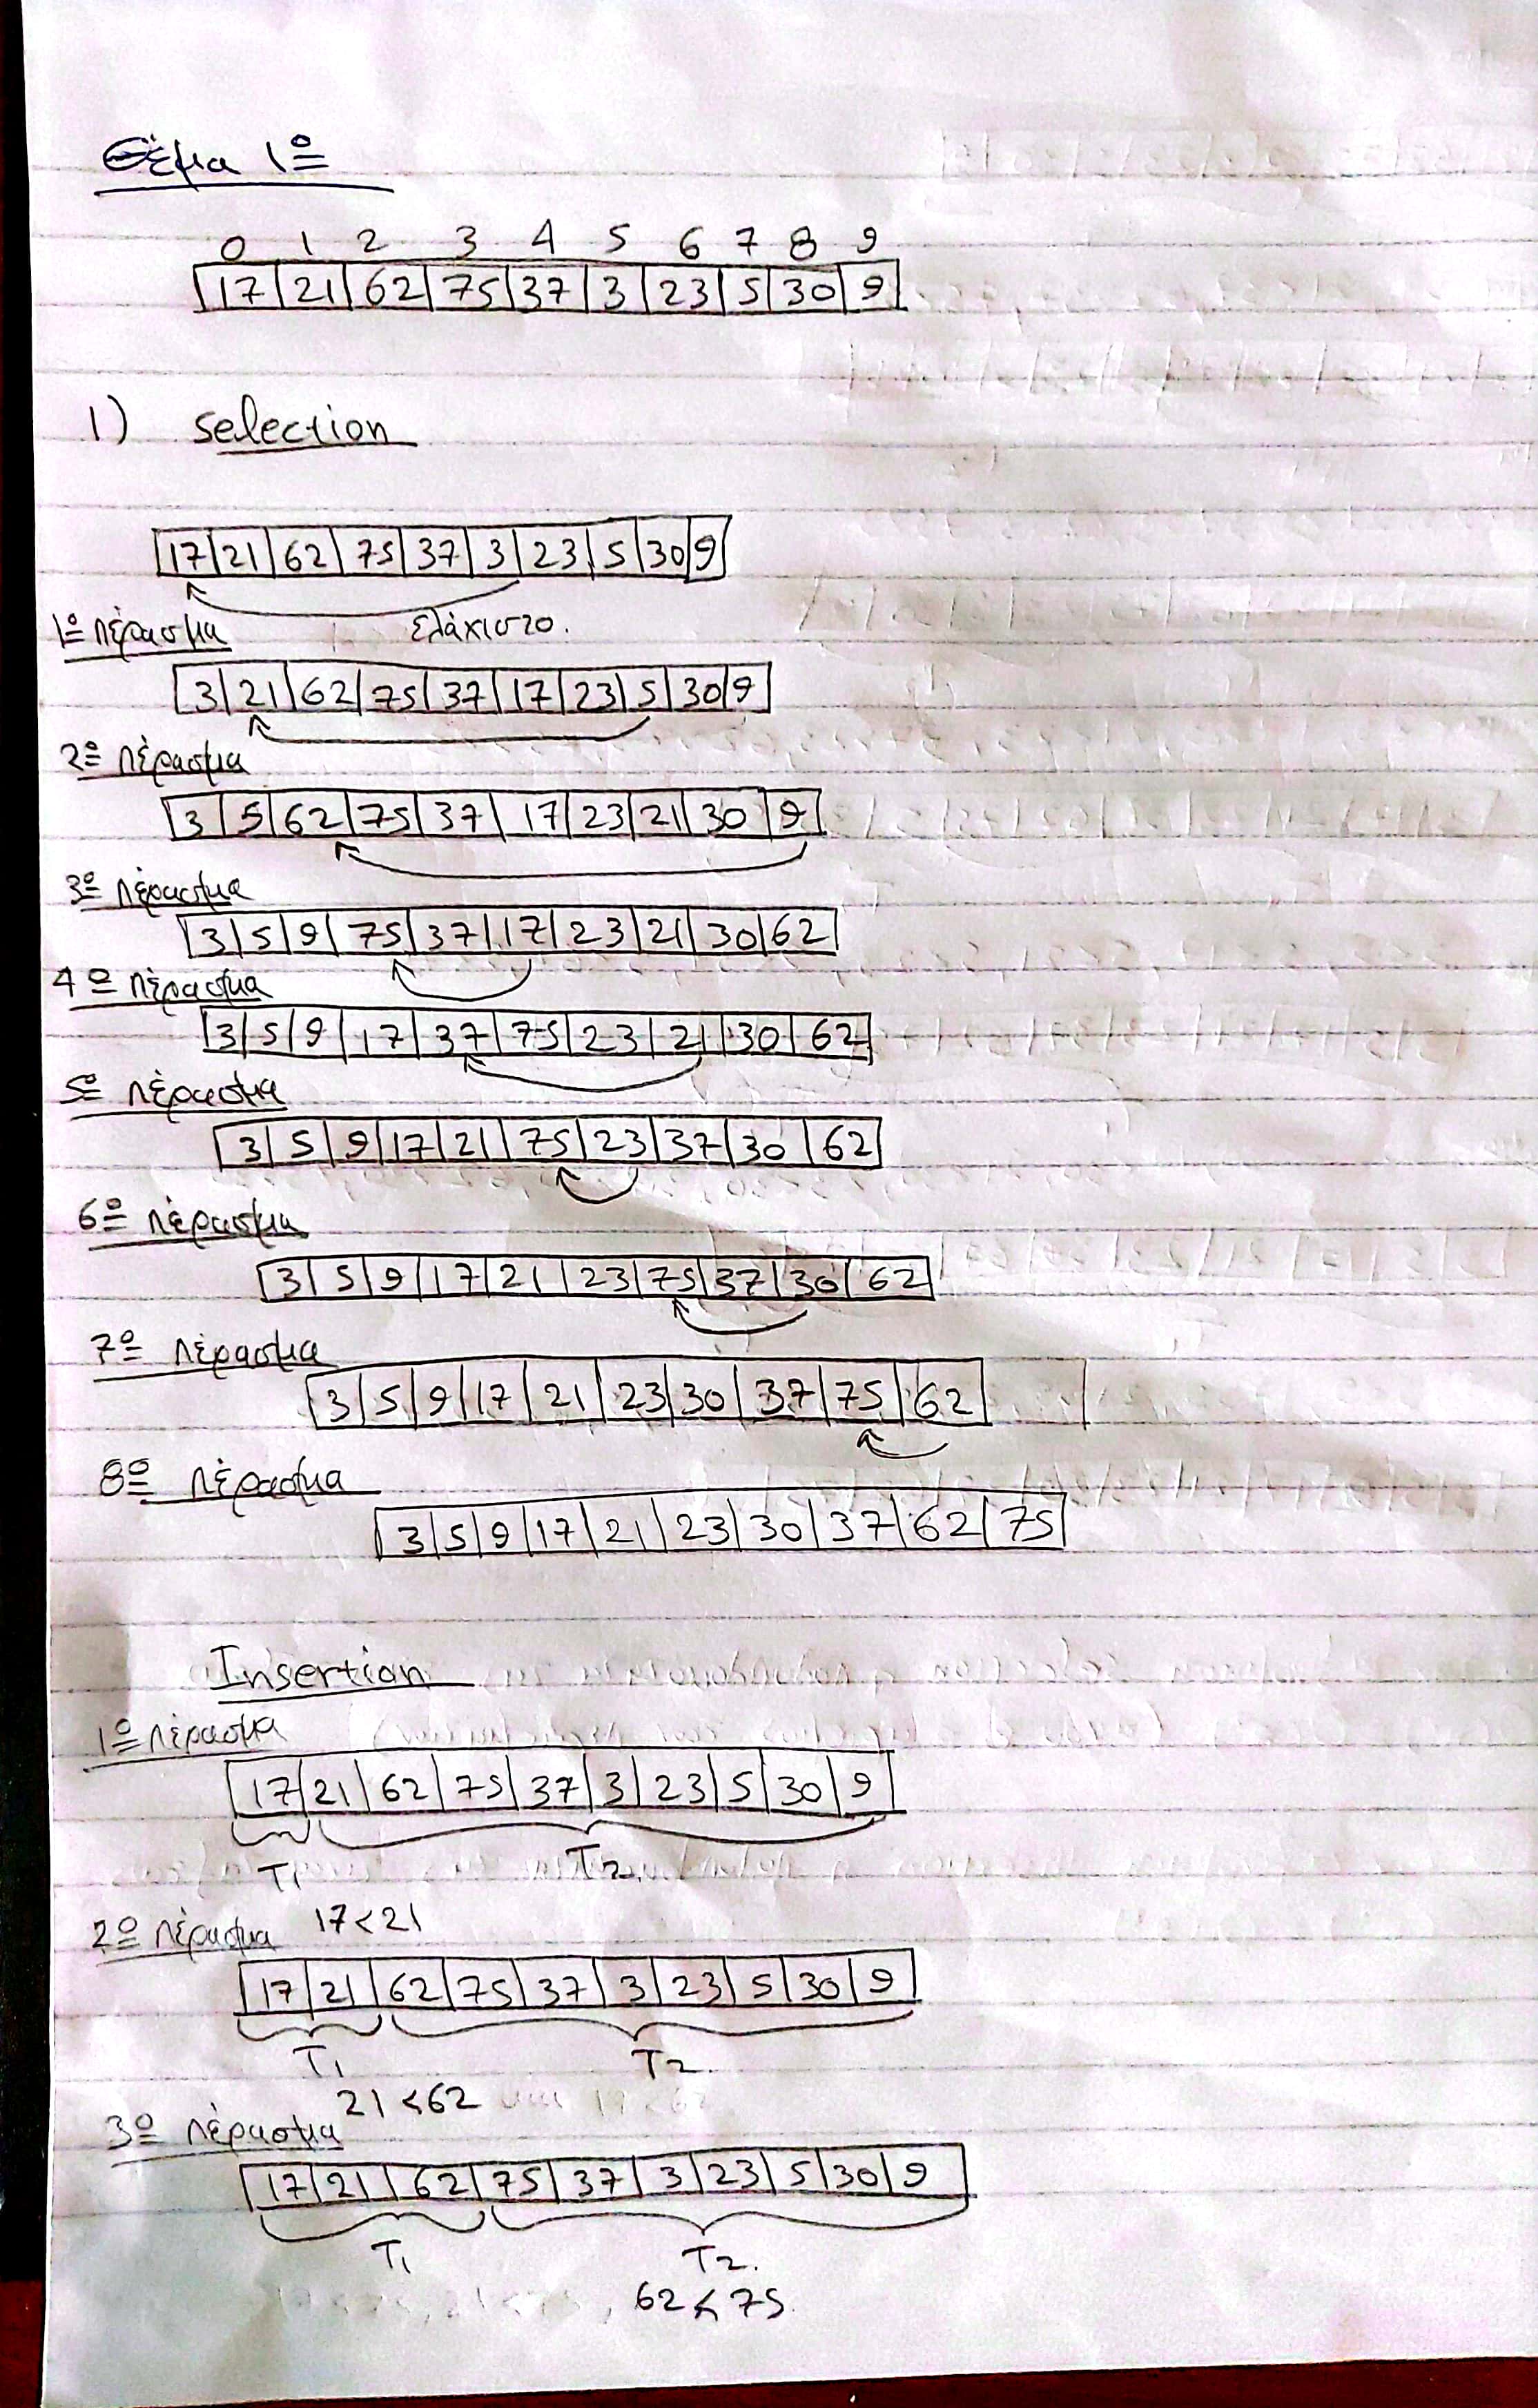 Θέμα 1º
0 1 2 3 4 5 6 7 8 9
17 21 62 75 37 3 23 5 30 9
1) selection
17 21 62 75 37 3 23 5 30 9
ελάχιστο.
1º πέρασμα
3 21 62 75 37 17 23 5 30 9
2º πέρασμα
3 5 62 75 37 17 23 21 30 9
3º πέρασμα
3 5 9 75 37 17 23 21 30 62
4º πέρασμα
3 5 9 17 37 75 23 21 30 62
5º πέρασμα
3 5 9 17 21 75 23 37 30 62
6º πέρασμα
3 5 9 17 21 23 75 37 30 62
7º πέρασμα
3 5 9 17 21 23 30 37 75 62
8º πέρασμα
3 5 9 17 21 23 30 37 62 75
Insertion
1º πέρασμα
17 21 62 75 37 3 23 5 30 9
T1 T2
2º πέρασμα 17<21
17 21 62 75 37 3 23 5 30 9
T1 T2.
21<62
3º πέρασμα
17 21 62 75 37 3 23 5 30 9
T1 T2.
62<75